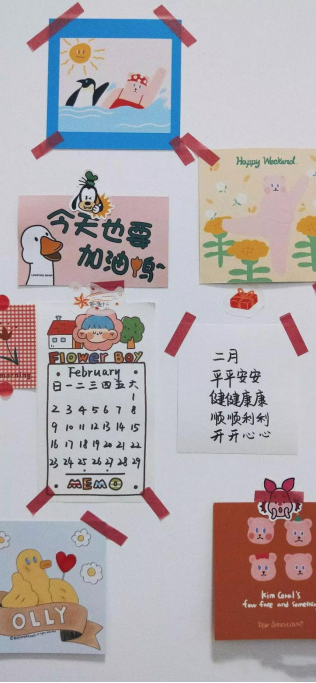 Happy Weekend.
今天也要
加油鸭~
Flower Boy
February
日 一 二 三 四 五 六
1
2 3 4 5 6 7 8
9 10 11 12 13 14 15
16 17 18 19 20 21 22
23 24 25 26 27 28 29
MEMO
二月
平平安安
健健康康
顺顺利利
开开心心
OLLY
Kim Coral's